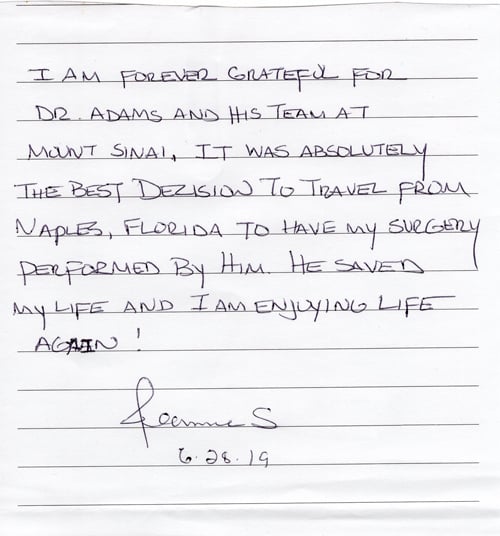 I AM FOREVER GRATEFUL FOR
DR. ADAMS AND HIS TEAM AT
MOUNT SINAI, IT WAS ABSOLUTELY
THE BEST DEZISION TO TRAVEL FROM
NAPLES, FLORIDA TO HAVE MY SURGERY
PERFORMED BY HIM. HE SAVED
MY LIFE AND I AM ENJOYING LIFE
AGAIN!
Jeanne S
6.28.19